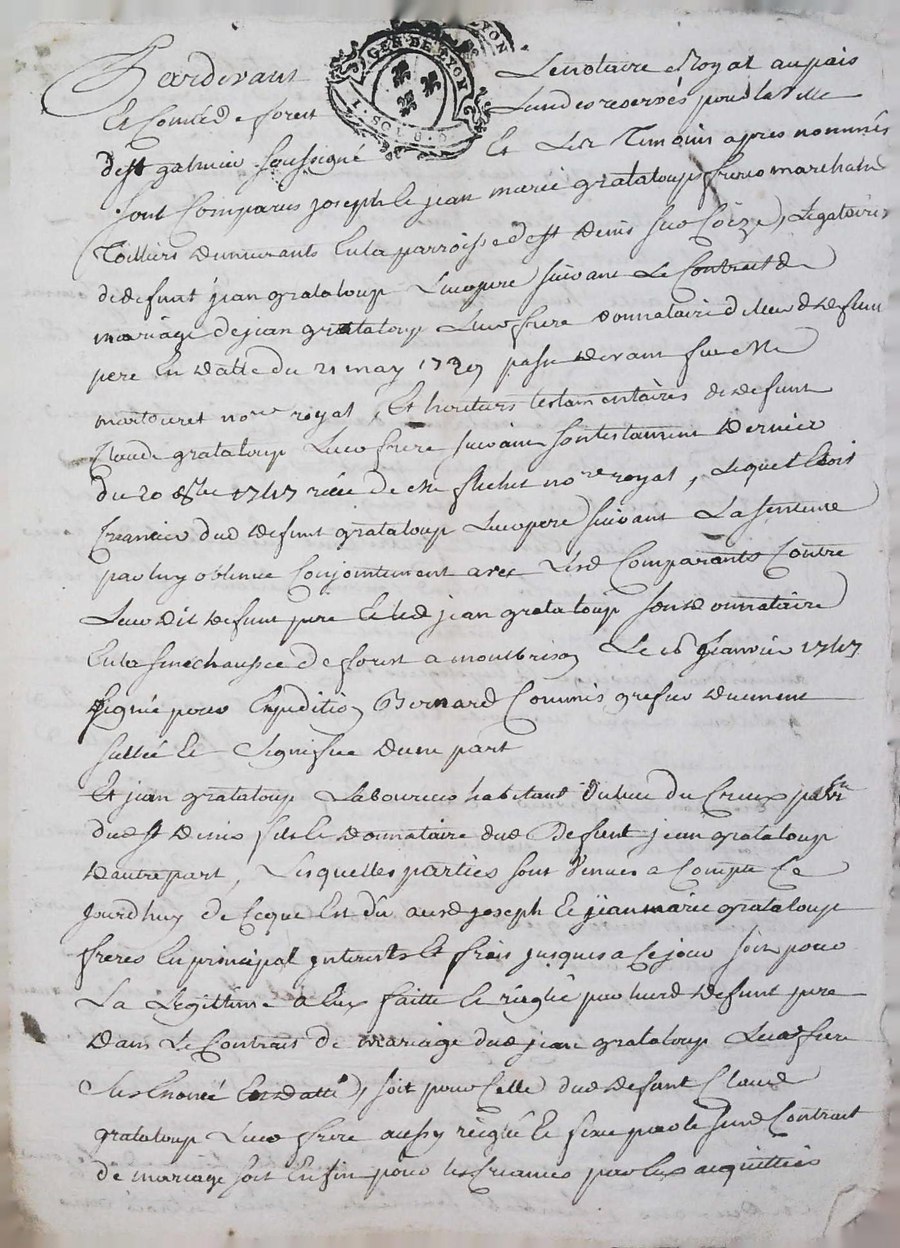 GEN DE LYON
Pardevant Le notaire Royal au païs
Et Comté de forest Lun des reservés pour la Ville
de st galmier soussigné Et Les Temoins apres nommés
sont Comparus joseph & jean marie grataloup freres marchands
Toilliers demeurants En la parroisse de st Denis sur Coize, Legataires
de defunt jean grataloup Leur pere suivant Le Contrait de
mariage de jean grataloup Leur frere donnataire dud defunt
pere En datte du 21 may passé devant feu Me
nore royal, Et heritiers testamentaires de defunt
Claude grataloup Leur frere suivant son testament dernier
du 20 8bre 1747 reçu de Me nore royal, Lequel Etoit
Creancier dud defunt grataloup Leur pere suivant La sentence
par luy obtenue Conjointement avec Lesd Comparants Contre
Leur dit defunt pere Et led jean grataloup son donnataire
En la senechaussée de forest a montbrison Le 16 janvier 1747
signée pour Expedition Bernard Commis grefier duement
sellée Et signifiée dune part
Et jean grataloup Laboureur habitant du Creux parr
dud st Denis fils & donnataire dud Defunt jean grataloup
dautre part, Lesquelles parties sont venues a Compte Ce
jourdhuy de Ce que Est dû aud joseph & jean marie grataloup
freres En principal interests Et frais jusques a Ce jour soit pour
La Legittime a Eux faitte & reiglée par leurd defunt pere
dans Le Contrait de mariage dud jean grataloup Leur frere
sus Enoncé Et datté, soit pour Celle dud defunt Claude
grataloup Leur frere aussy reiglée Et fixée par le susd Contrait
de mariage soit Enfin pour les Creances par Eux acquittées